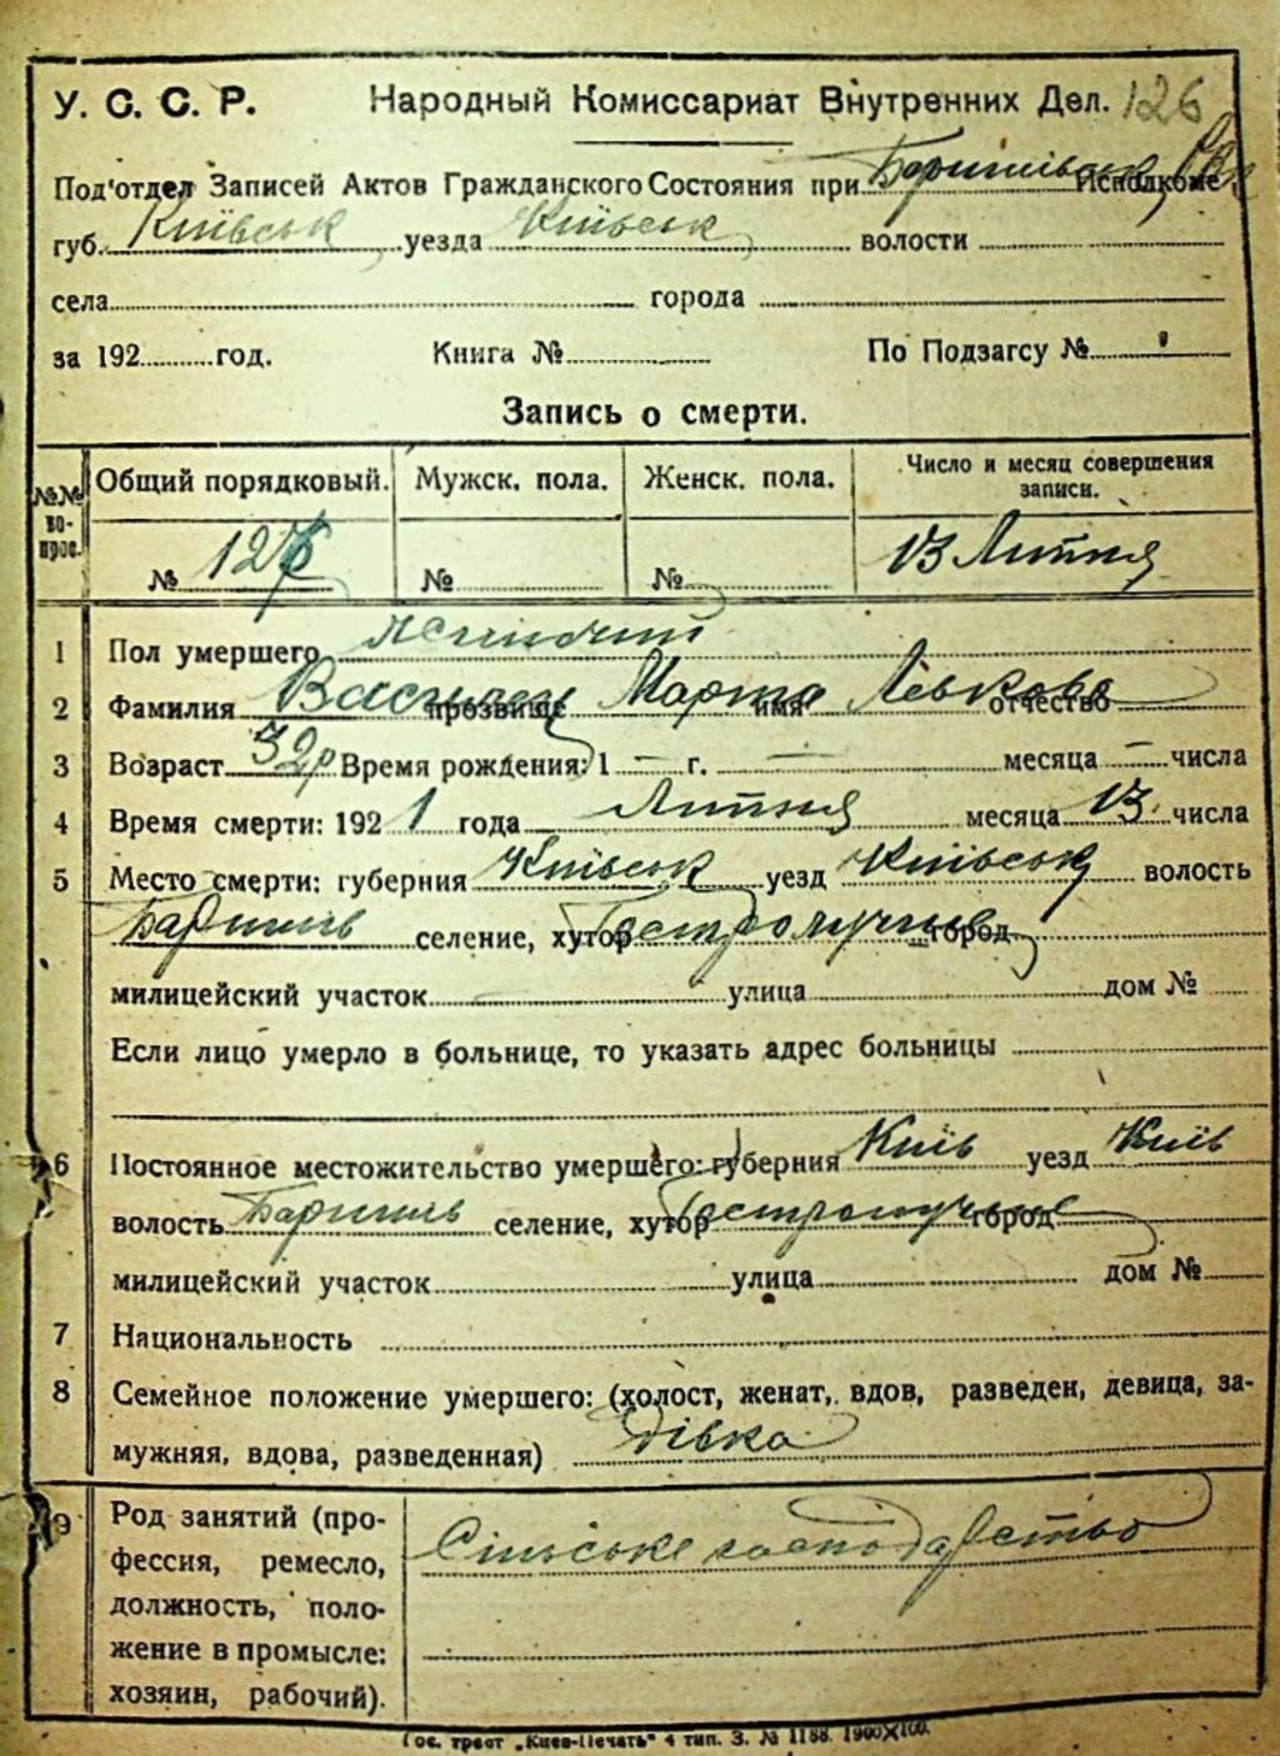 У. С. С. Р. Народный Комиссариат Внутренних Дел. 126
Под'отдел Записей Актов Гражданского Состояния при Исполкоме
губ. Київськ уезда Київськ волости
села города
за 192 год. Книга № По Подзагсу №
Запись о смерти.
№№ вопрос. Общий порядковый. Мужск. пола. Женск. пола. Число и месяц совершения записи.
№ № № 13 Липня
1 Пол умершего жіночий
2 Фамилия прозвище Марта имя Левкова отчество
3 Возраст 32р Время рождения: 1 — г. — месяца — числа
4 Время смерти: 192 1 года Липня месяца 13 числа
5 Место смерти: губерния Київськ уезд Київськ волость
Баришів селение, хутор город
милицейский участок улица дом №
Если лицо умерло в больнице, то указать адрес больницы
6 Постоянное местожительство умершего: губерния Київ уезд Київ
волость Баришів селение, хутор город
милицейский участок улица дом №
7 Национальность
8 Семейное положение умершего: (холост, женат, вдов, разведен, девица, за-
мужняя, вдова, разведенная) дівка
9 Род занятий (про- Сільське господарство
фессия, ремесло,
должность, поло-
жение в промысле:
хозяин, рабочий).
Гос. трест „Киев-Печать" 4 тип. З. № 1188. 1900×100.